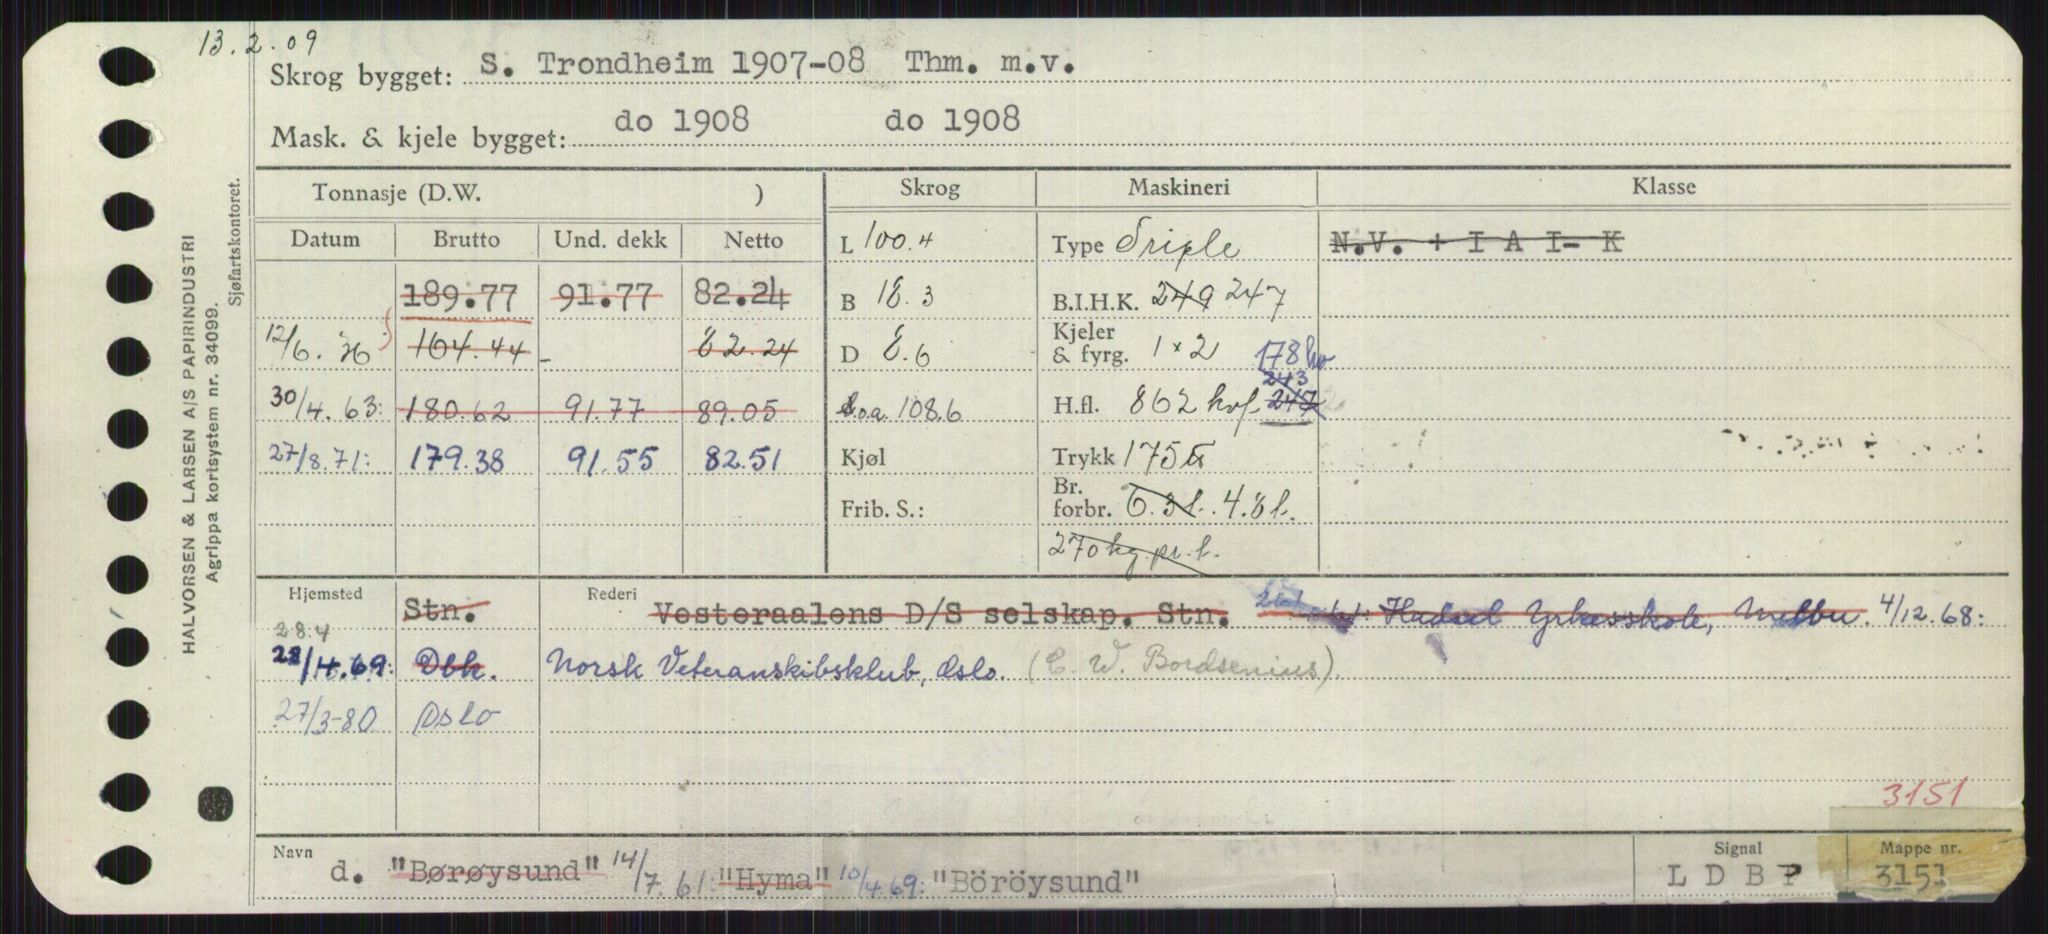 13.2.09
Skrog bygget: S. Trondheim 1907-08 Thm. m.v.
Mask. & kjele bygget: do 1908 do 1908
Tonnasje (D.W. ) Skrog Maskineri Klasse
Datum Brutto Und. dekk Netto L 100.4 Type Triple N.V. + I A I- K
189.77 91.77 82.24 B 18.3 B.I.H.K. 249 247
12/6. 164.44 - 82.24 D 8.6 Kjeler & fyrg. 1 x 2 178 hv
243
30/4.63: 180.62 91.77 89.05 l.o.a. 108.6 H.fl. 862 kvf. 247
27/8.71: 179.38 91.55 82.51 Kjøl Trykk 175 tt
Frib. S.: Br. forbr. 6.3 l. 4.8 l.
270 kg pr. t.
Hjemsted Stn. Rederi Vesteraalens D/S selskap. Stn. Hadsel Yrkesskole, Melbu. 4/12.68:
28.4
28/4.69: Dbk. Norsk Veteranskibsklub, Oslo. (C. W. Bordsenius).
27/3-80 Oslo
3151
Navn d. "Børøysund" 14/7.61: "Hyma" 10/4.69: "Böröysund" Signal L D B P Mappe nr. 3151
HALVORSEN & LARSEN A/S PAPIRINDUSTRI
Agrippa kortsystem nr. 34099.
Sjøfartskontoret.